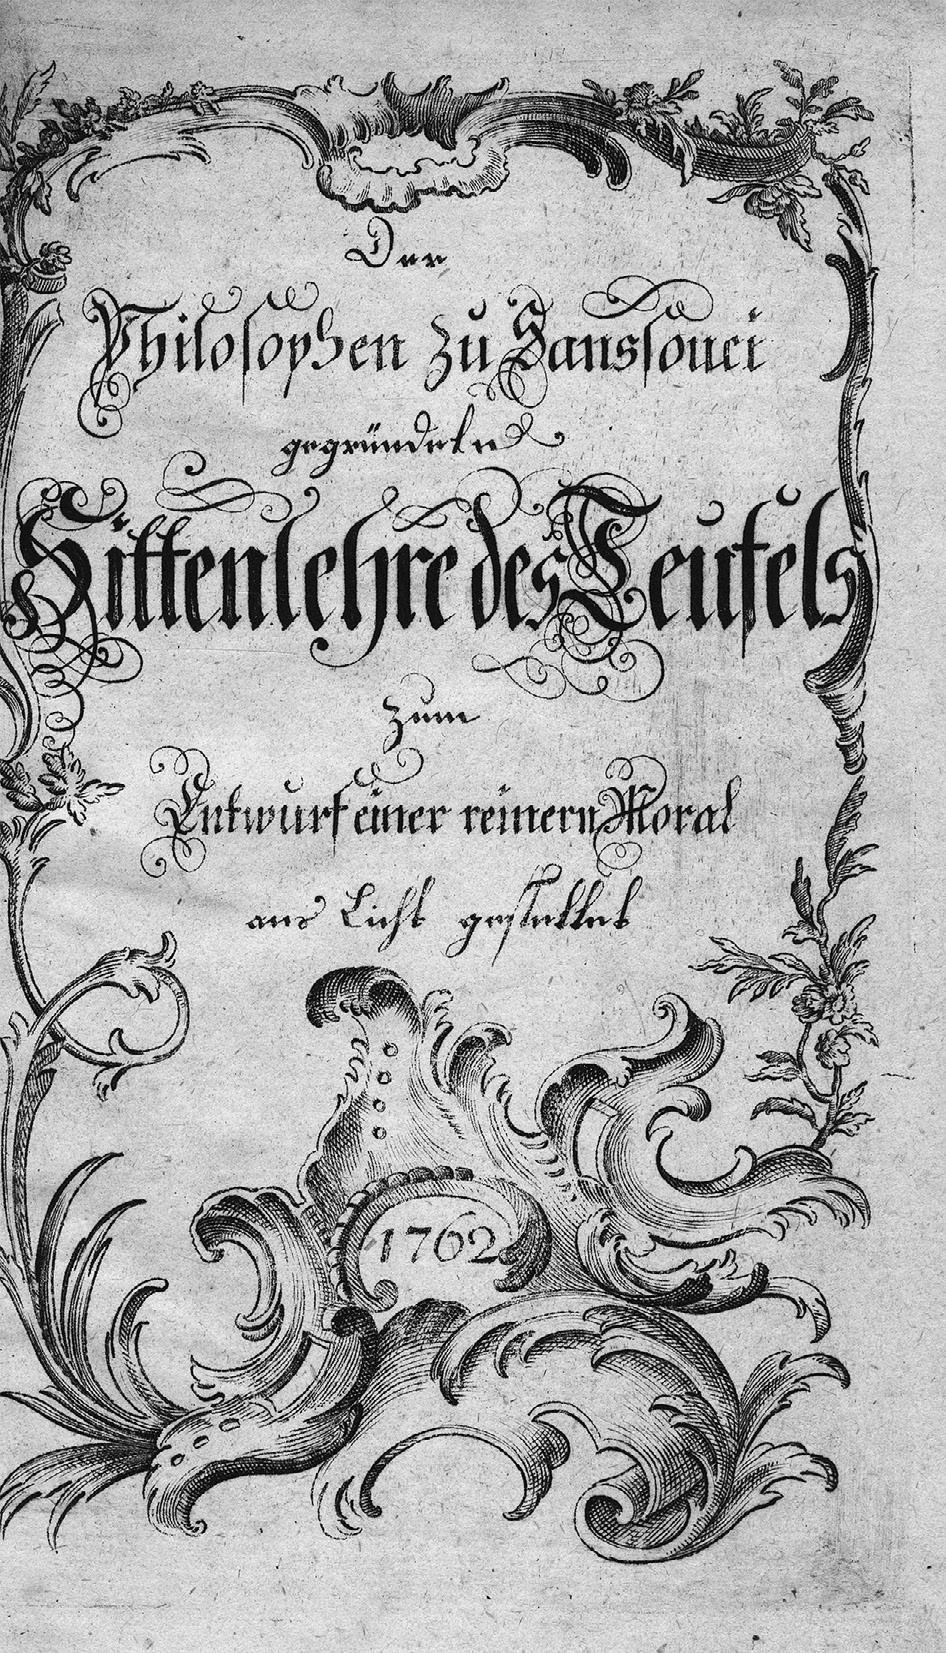 Der
Philosophen zu Sanssouci
gegründete
Sittenlehre des Teufels
zum
Entwurf einer reinern Moral
ans Licht gestellet
1762